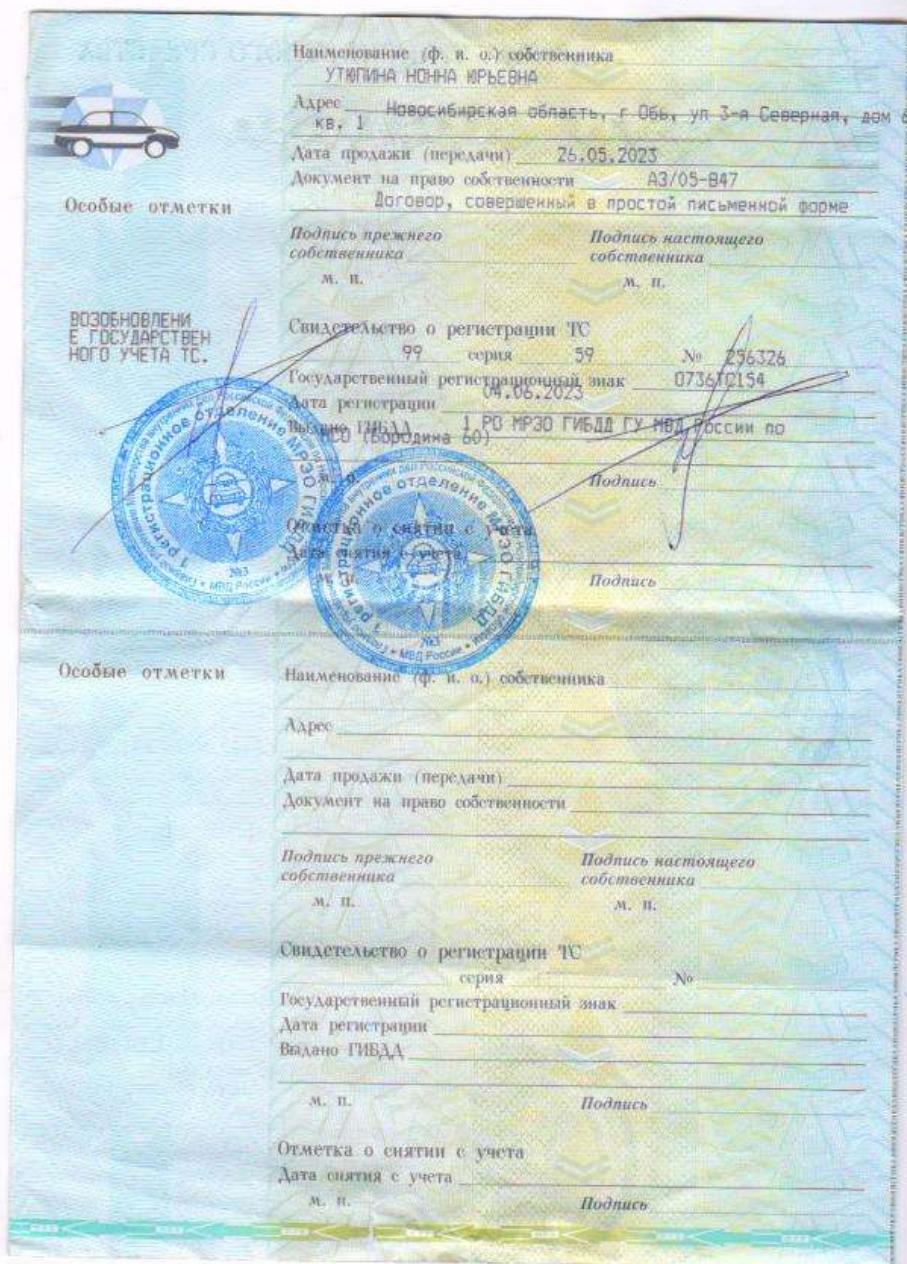 Наименование (ф. и. о.) собственника
УТЮПИНА НОННА ЮРЬЕВНА
Адрес Новосибирская область, г Обь, ул 3-я Северная, дом 6
кв. 1
Дата продажи (передачи) 26.05.2023
Документ на право собственности АЗ/05-В47
Договор, совершенный в простой письменной форме
Особые отметки
Подпись прежнего собственника
Подпись настоящего собственника
м. п. м. п.
ВОЗОБНОВЛЕНИ
Е ГОСУДАРСТВЕН
НОГО УЧЕТА ТС.
Свидетельство о регистрации ТС
99 серия 59 № 256326
Государственный регистрационный знак О736ТС154
Дата регистрации 04.06.2023
Выдано ГИБДД 1 РО МРЭО ГИБДД ГУ МВД России по
НСО (Бородина 60)
Подпись
Отметка о снятии с учета
Дата снятия с учета
Подпись
1 регистрационное отделение МРЭО ГИБДД
№3
МВД России
1 регистрационное отделение МРЭО ГИБДД
№3
МВД России
Особые отметки
Наименование (ф. и. о.) собственника
Адрес
Дата продажи (передачи)
Документ на право собственности
Подпись прежнего собственника
Подпись настоящего собственника
м. п. м. п.
Свидетельство о регистрации ТС
серия №
Государственный регистрационный знак
Дата регистрации
Выдано ГИБДД
м. п. Подпись
Отметка о снятии с учета
Дата снятия с учета
м. п. Подпись